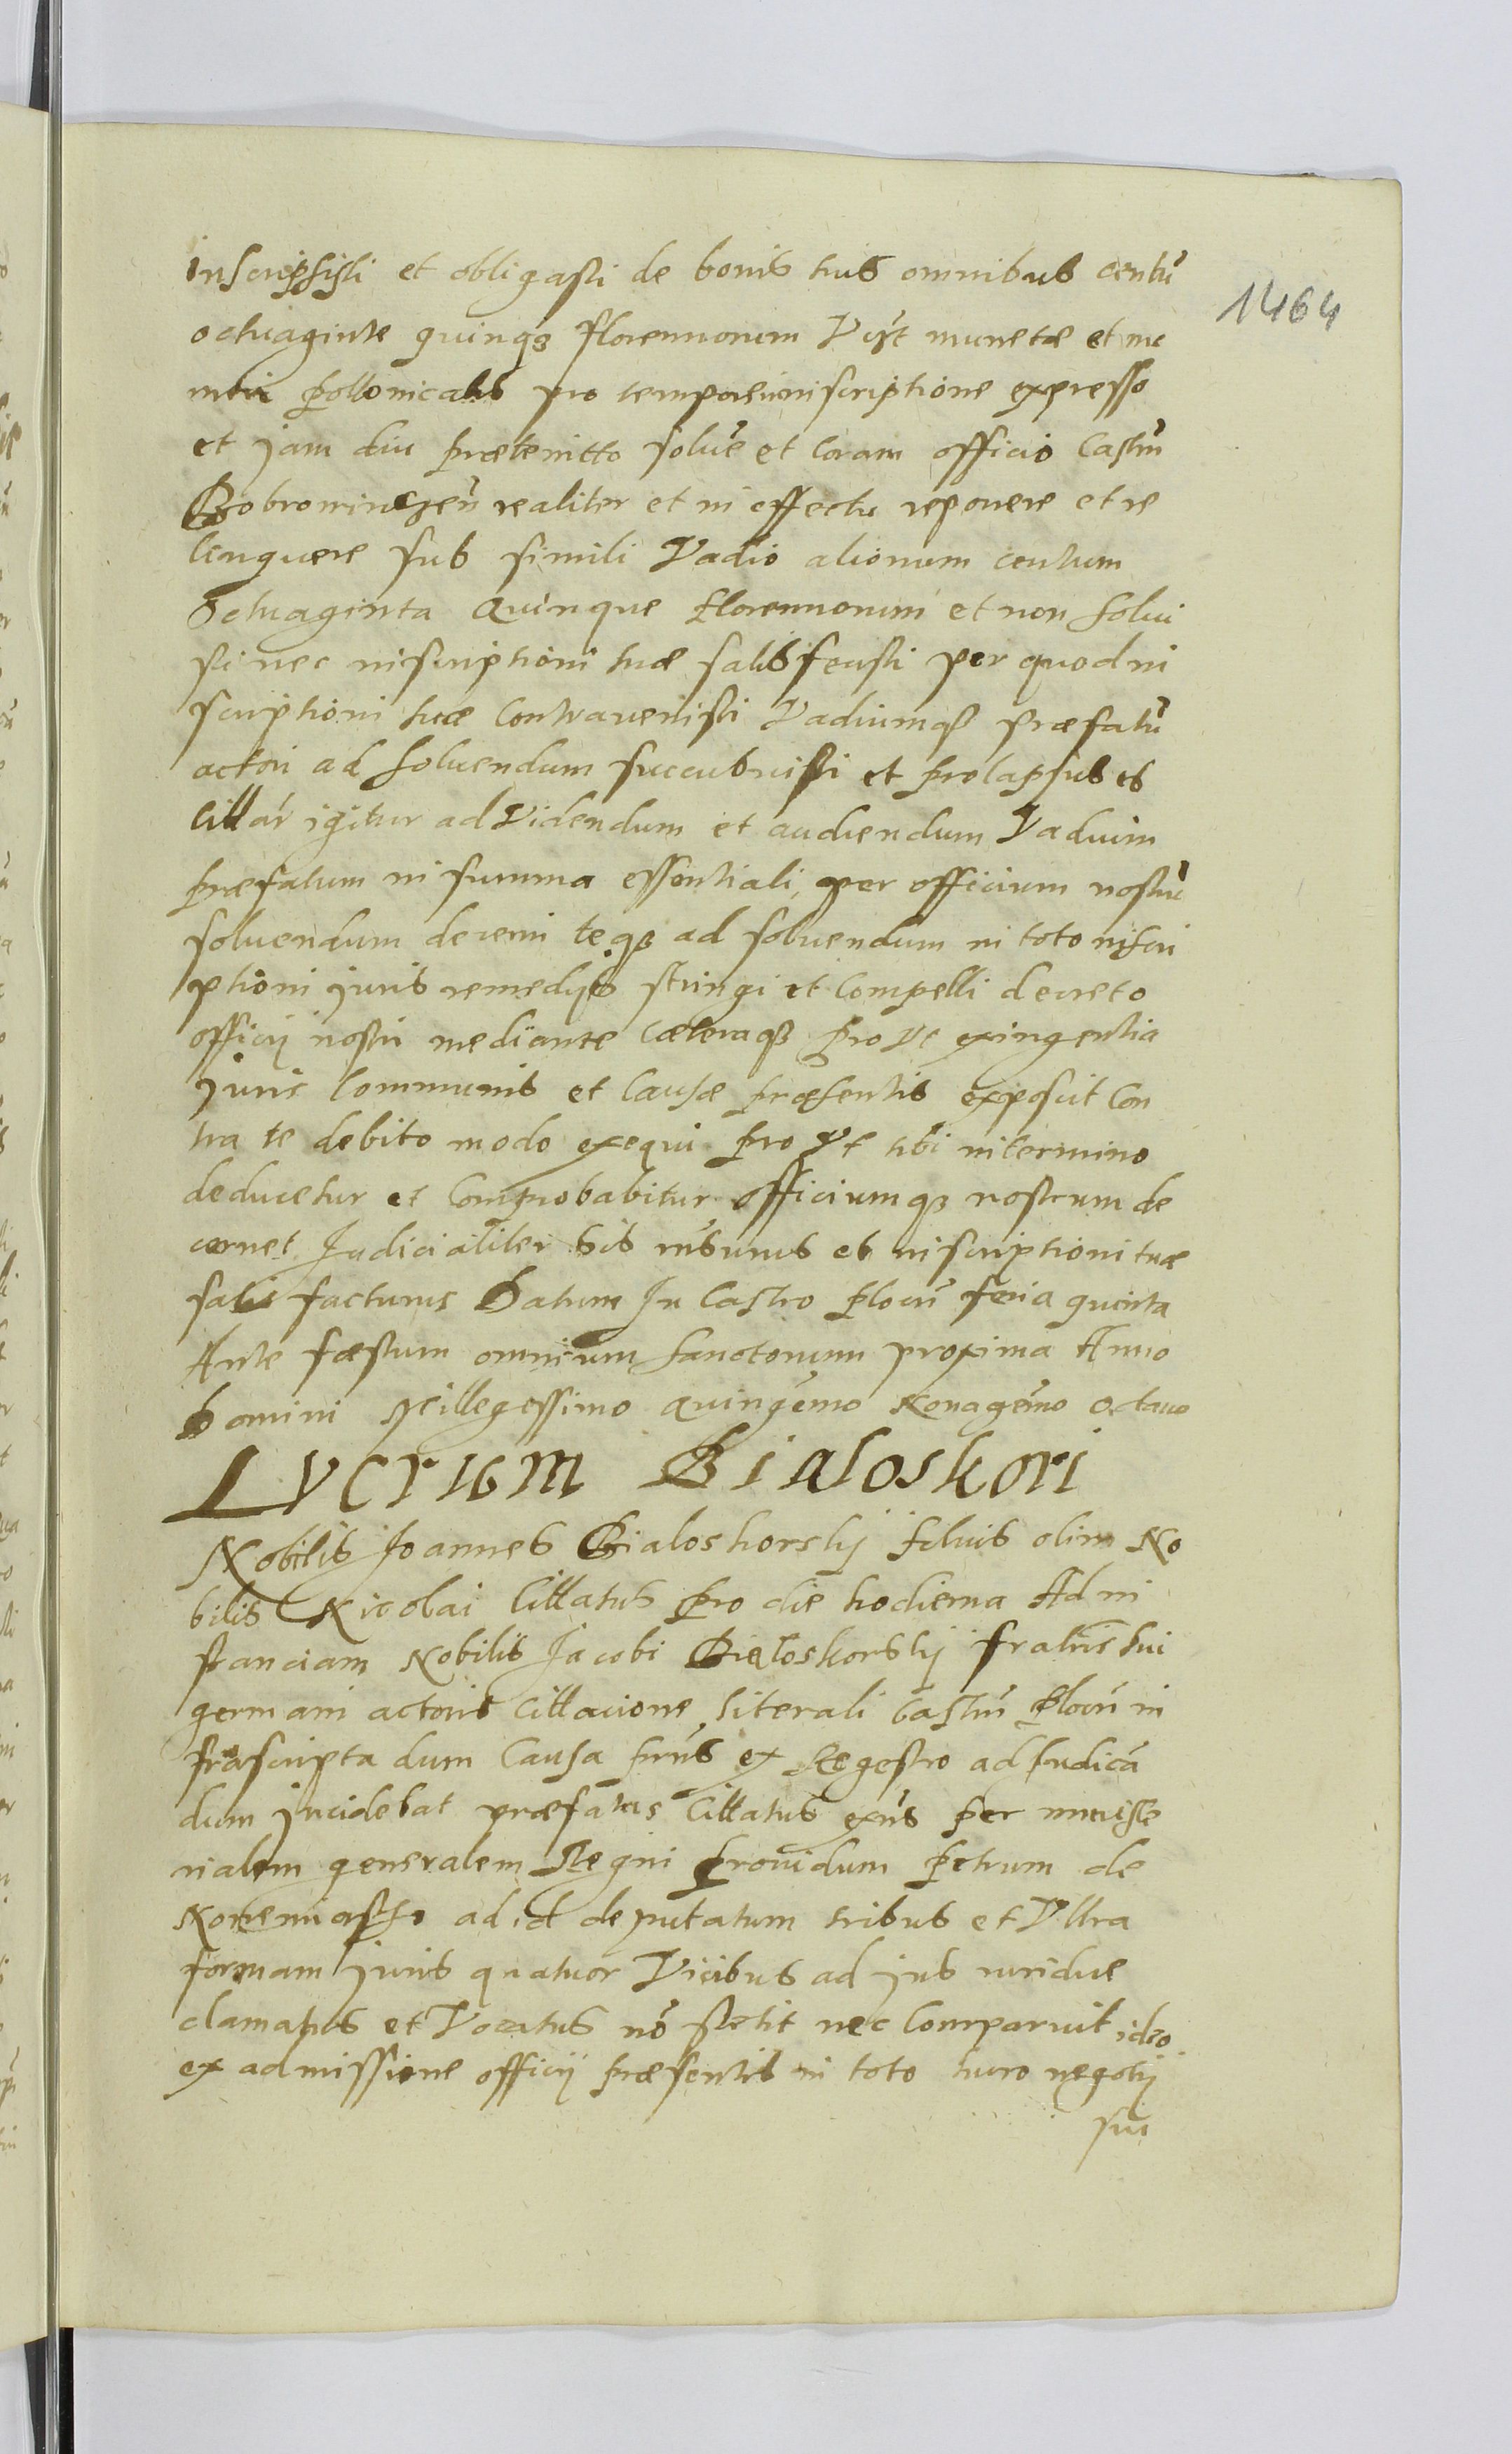 inscripsisti et obligasti de bonis tuis omnibus centũ
1464
octuaginte quinq3 florennorum Vgt munetæ et nu
meri pollonicalis pro tempore in inscriptione expresso
et jam diu præteritto soluẽ et Coram officio Castrñ
Bobrownicẽn realiter et in effectu reponere et re
linquere sub simili Vadio aliorum centum
Octuaginta Quinque florennorum et non solui
sti nec inscriptioni tuæ satisfecisti per quod in
scriptioni tuæ Contrauenisti Vadiumq3 præfatũ
actori ad soluendum succubuisti et prolapsus es
Cittar igitur ad Videndum et audiendum Vadium
præfatum in summa essentiali per officium nostrũ
soluendum decerni teq3 ad soluendum in toto inscri
ptioni juris remedijs stringi et Compelli decreto
officij nostri mediante cæteraq3 pro Vt exingentia
juris Communis et Causæ præsentis exposcit Con
tra te debito modo exequi pro Vt tibi in termino
deducetur et Comprobabitur officiumq3 nostrum de
cernet Judicialiter sis rñsurus et inscriptioni tuæ
satis facturus Datum In Castro Plocñ feria quinta
Ante fæstum omnium sanctorum proxima Anno
Domini Millegessimo Quingẽmo Nonagẽmo Octauo
Lvcrum Bialoskori
Nobilis Joannes Bialoskorskj filius olim No
bilis Nicolai Cittatus pro die hodierna Ad in
stanciam Nobilis Jacobi Bialoskorskj fratris sui
germani actoris Cittacione literali Castrñ Plocñ in
frascripta dum Causa prñs ex Regestro ad Judicã
dum jncidebat præfatus Cittatus exñs per ministe
rialem generalem Regni prouidum Petrum de
Nonemiasto ad id deputatum tribus et Vltra
formam juris quatuor Vicibus ad jus iuridice
clamatus et Vocatus nõ stetit nec Comparuit ideo
ex admissione officij præsentis in toto lucro negotij
sui